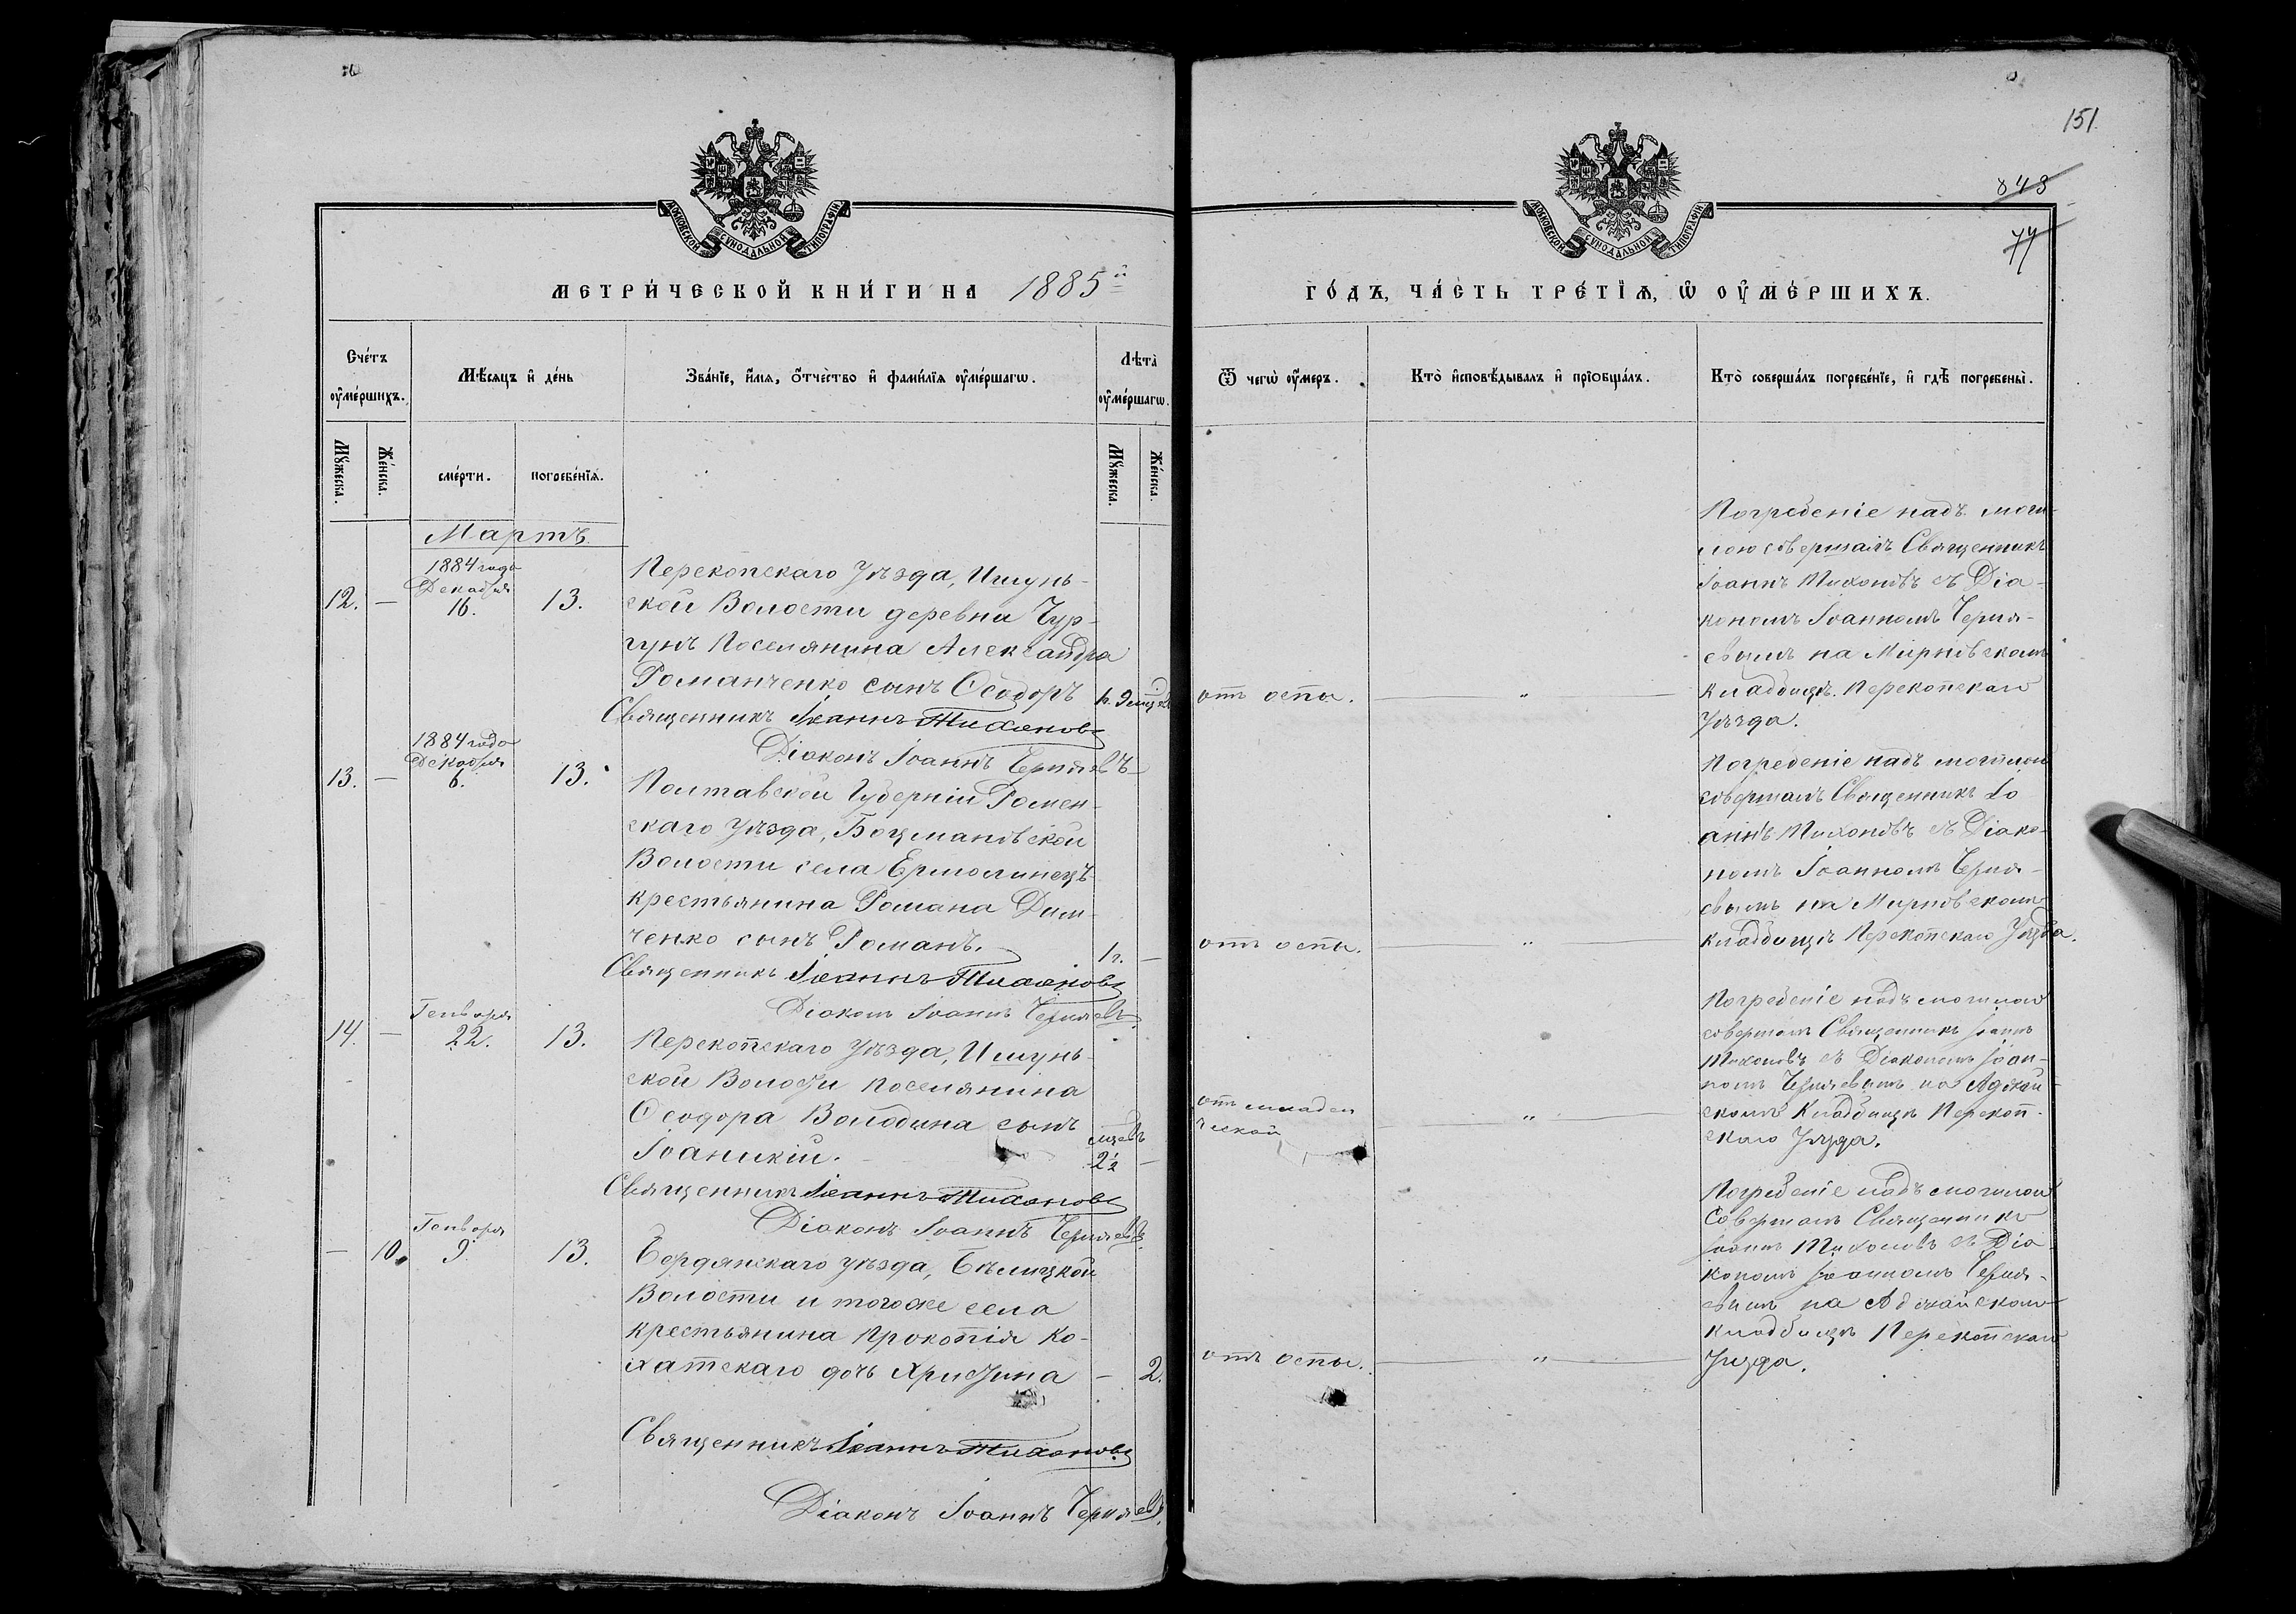 151.
843
77
МОСКОВСКОЙ СѴНОДАЛЬНОЙ ТИПОГРАФІИ
МОСКОВСКОЙ СѴНОДАЛЬНОЙ ТИПОГРАФІИ
МЕТРИ́ЧЕСКОЙ КНИ́ГИ НА 1885й
ГО́ДЪ, ЧА́СТЬ ТРЕ́ТІѦ, Ѡ ОУ҆МЕ́РШИХЪ.
Сче́тъ оу҆ме́ршихъ.
Мѣ́сяцъ и҆ де́нь
Зва́нїе, и҆́мѧ, ѻ҆́тчество и҆ фами́лїѧ оу҆ме́ршагѡ.
Лѣта̀ оу҆ме́ршагѡ.
Ѿ чегѡ̀ оу҆́меръ.
Кто̀ и҆сповѣ́дывалъ и҆ прїобща́лъ.
Кто̀ соверша́лъ погребе́нїе, и҆ гдѣ̀ погребены̀.
Мꙋ́жеска.
Же́нска.
сме́рти.
погребе́нїѧ.
Мꙋ́жеска.
Же́нска.
Мартъ
12. —
1884 года
Декабря
16.
13.
Перекопскаго Уѣзда, Ишунь-
ской Волости деревни Чур-
гунъ Поселянина Александра
Романченко сынъ Ѳеодоръ
Священникъ Іоаннъ Тихоновъ
Діаконъ Іоаннъ Черняевъ
отъ оспы. — „ —
Погребеніе надъ моги-
лою совершалъ Священникъ
Іоаннъ Тихоновъ съ Діа-
кономъ Іоанномъ Черня-
евымъ на Мирновскомъ
кладбищѣ Перекопскаго
Уѣзда.
13. —
1884 года
Декабря
6.
13.
Полтавской Губерніи Ромен-
скаго Уѣзда, Боцмановской
Волости села Ермолинецъ
крестьянина Романа Дим-
ченко сынъ Романъ.
1 г. —
Священникъ Іоаннъ Тихоновъ
Діаконъ Іоаннъ Черняевъ.
отъ оспы. — „ —
Погребеніе надъ могилою
совершалъ Священникъ Іо
аннъ Тихоновъ съ Діако-
номъ Іоанномъ Черня-
евымъ на Мирновскомъ
кладбищѣ Перекопскаго Уѣзда.
14. —
Генваря
22.
13.
Перекопскаго Уѣзда, Ишунь-
ской Волости Поселянина
Ѳеодора Володина сынъ
Іоаникій.
2½ —
Священникъ Іоаннъ Тихоновъ
Діаконъ Іоаннъ Черняевъ.
отъ младен
ческой
— „ —
Погребеніе надъ могилою
совершалъ Священникъ Іоаннъ
Тихоновъ съ Діакономъ Іоан-
номъ Черняевымъ на
скомъ Кладбищѣ Перекоп-
скаго Уѣзда.
— 10.
Генваря
9.
13.
Бердянскаго уѣзда, Бѣлицкой
Волости и тогоже села
крестьянина Прокопія Ко-
хатскаго дочь Христина — 2.
Священникъ Іоаннъ Тихоновъ
Діаконъ Іоаннъ Черняевъ.
отъ оспы. — „ —
Погребеніе надъ могилою
Совершалъ Священникъ
Іоаннъ Тихоновъ съ Діа-
кономъ Іоанномъ Черня-
евымъ на
кладбищѣ Перекопскаго
Уѣзда.